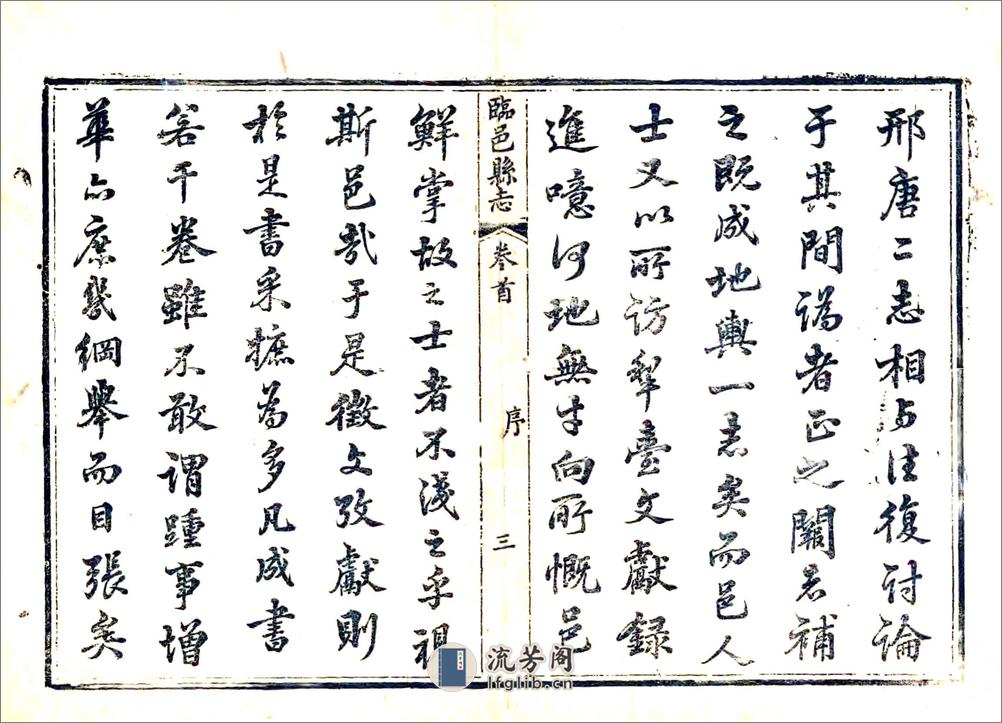 邢唐二志相与往復討論
于其間譌者正之闕者補
之既成地輿一志矣而邑人
士又以所訪犁臺文獻録
進噫何地無才向所慨邑
臨邑縣志 卷首 序 三
鮮掌故之士者不淺之乎視
斯邑哉于是徵文攷獻則
於是書采摭為多凡成書
若干卷雖不敢謂踵事增
華亦庶幾綱舉而目張矣
流芳阁
lfglib.cn